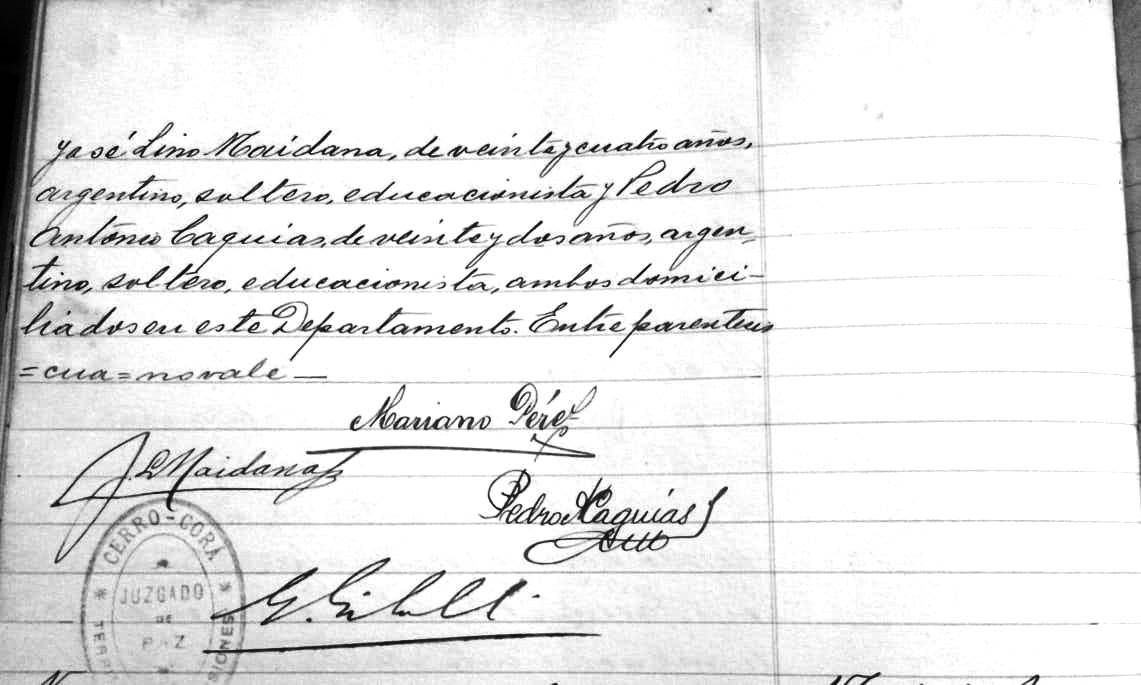 y José Lino Maidana, de veinte y cuatro años,
argentino, soltero, educacionista y Pedro
Antonio Caguias, de veinte y dos años, argen-
tino, soltero, educacionista, ambos domici-
liados en este Departamento. Entre parentesis
=cua= no vale —
Mariano Pérez
J L Maidana
Pedro A Caguías
CERRO-CORÁ
G.
* JUZGADO *
DE
PAZ
TERR
SIONES